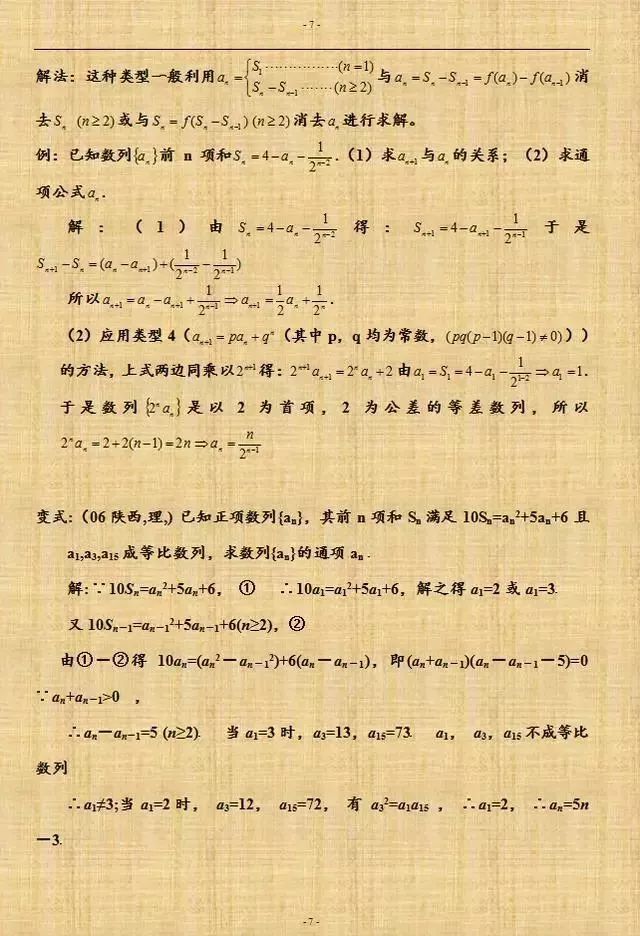 - 7 -
解法：这种类型一般利用 $a_n=\begin{cases}S_1 \cdots\cdots\cdots\cdots\cdots(n=1)\\S_n-S_{n-1}\cdots\cdots(n\geq2)\end{cases}$ 与 $a_n=S_n-S_{n-1}=f(a_n)-f(a_{n-1})$ 消
去 $S_n$ $(n\geq2)$ 或与 $S_n=f(S_n-S_{n-1})$ $(n\geq2)$ 消去 $a_n$ 进行求解。
例：已知数列 $\{a_n\}$ 前 n 项和 $S_n=4-a_n-\frac{1}{2^{n-2}}$.（1）求 $a_{n+1}$ 与 $a_n$ 的关系；（2）求通
项公式 $a_n$.
解：（1）由 $S_n=4-a_n-\frac{1}{2^{n-2}}$ 得：$S_{n+1}=4-a_{n+1}-\frac{1}{2^{n-1}}$ 于是
$S_{n+1}-S_n=(a_n-a_{n+1})+(\frac{1}{2^{n-2}}-\frac{1}{2^{n-1}})$
所以 $a_{n+1}=a_n-a_{n+1}+\frac{1}{2^{n-1}}\Rightarrow a_{n+1}=\frac{1}{2}a_n+\frac{1}{2^n}$.
（2）应用类型 4（$a_{n+1}=pa_n+q^n$（其中 p，q 均为常数，$(pq(p-1)(q-1)\neq0)$））
的方法，上式两边同乘以 $2^{n+1}$ 得：$2^{n+1}a_{n+1}=2^na_n+2$ 由 $a_1=S_1=4-a_1-\frac{1}{2^{1-2}}\Rightarrow a_1=1$.
于是数列 $\{2^na_n\}$ 是以 2 为首项，2 为公差的等差数列，所以
$2^na_n=2+2(n-1)=2n\Rightarrow a_n=\frac{n}{2^{n-1}}$
变式：（06 陕西,理,）已知正项数列{aₙ}，其前 n 项和 Sₙ 满足 10Sₙ=aₙ²+5aₙ+6 且
a₁,a₃,a₁₅ 成等比数列，求数列{aₙ}的通项 aₙ .
解: ∵10Sₙ=aₙ²+5aₙ+6， ① ∴10a₁=a₁²+5a₁+6，解之得 a₁=2 或 a₁=3.
又 10Sₙ₋₁=aₙ₋₁²+5aₙ₋₁+6(n≥2)，②
由①－②得 10aₙ=(aₙ²－aₙ₋₁²)+6(aₙ－aₙ₋₁)，即(aₙ+aₙ₋₁)(aₙ－aₙ₋₁－5)=0
∵aₙ+aₙ₋₁>0 ，
∴aₙ－aₙ₋₁=5 (n≥2). 当 a₁=3 时，a₃=13，a₁₅=73. a₁， a₃，a₁₅ 不成等比
数列
∴a₁≠3;当 a₁=2 时， a₃=12， a₁₅=72， 有 a₃²=a₁a₁₅ ， ∴a₁=2， ∴aₙ=5n
－3.
- 7 -